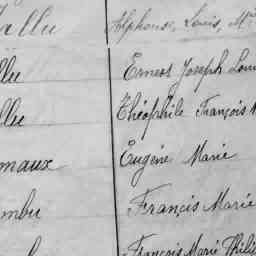 Alphonse, Louis, M
Ernest Joseph Loui
Théophile François M
maux Eugène Marie
mbu François Marie
François Marie Phili